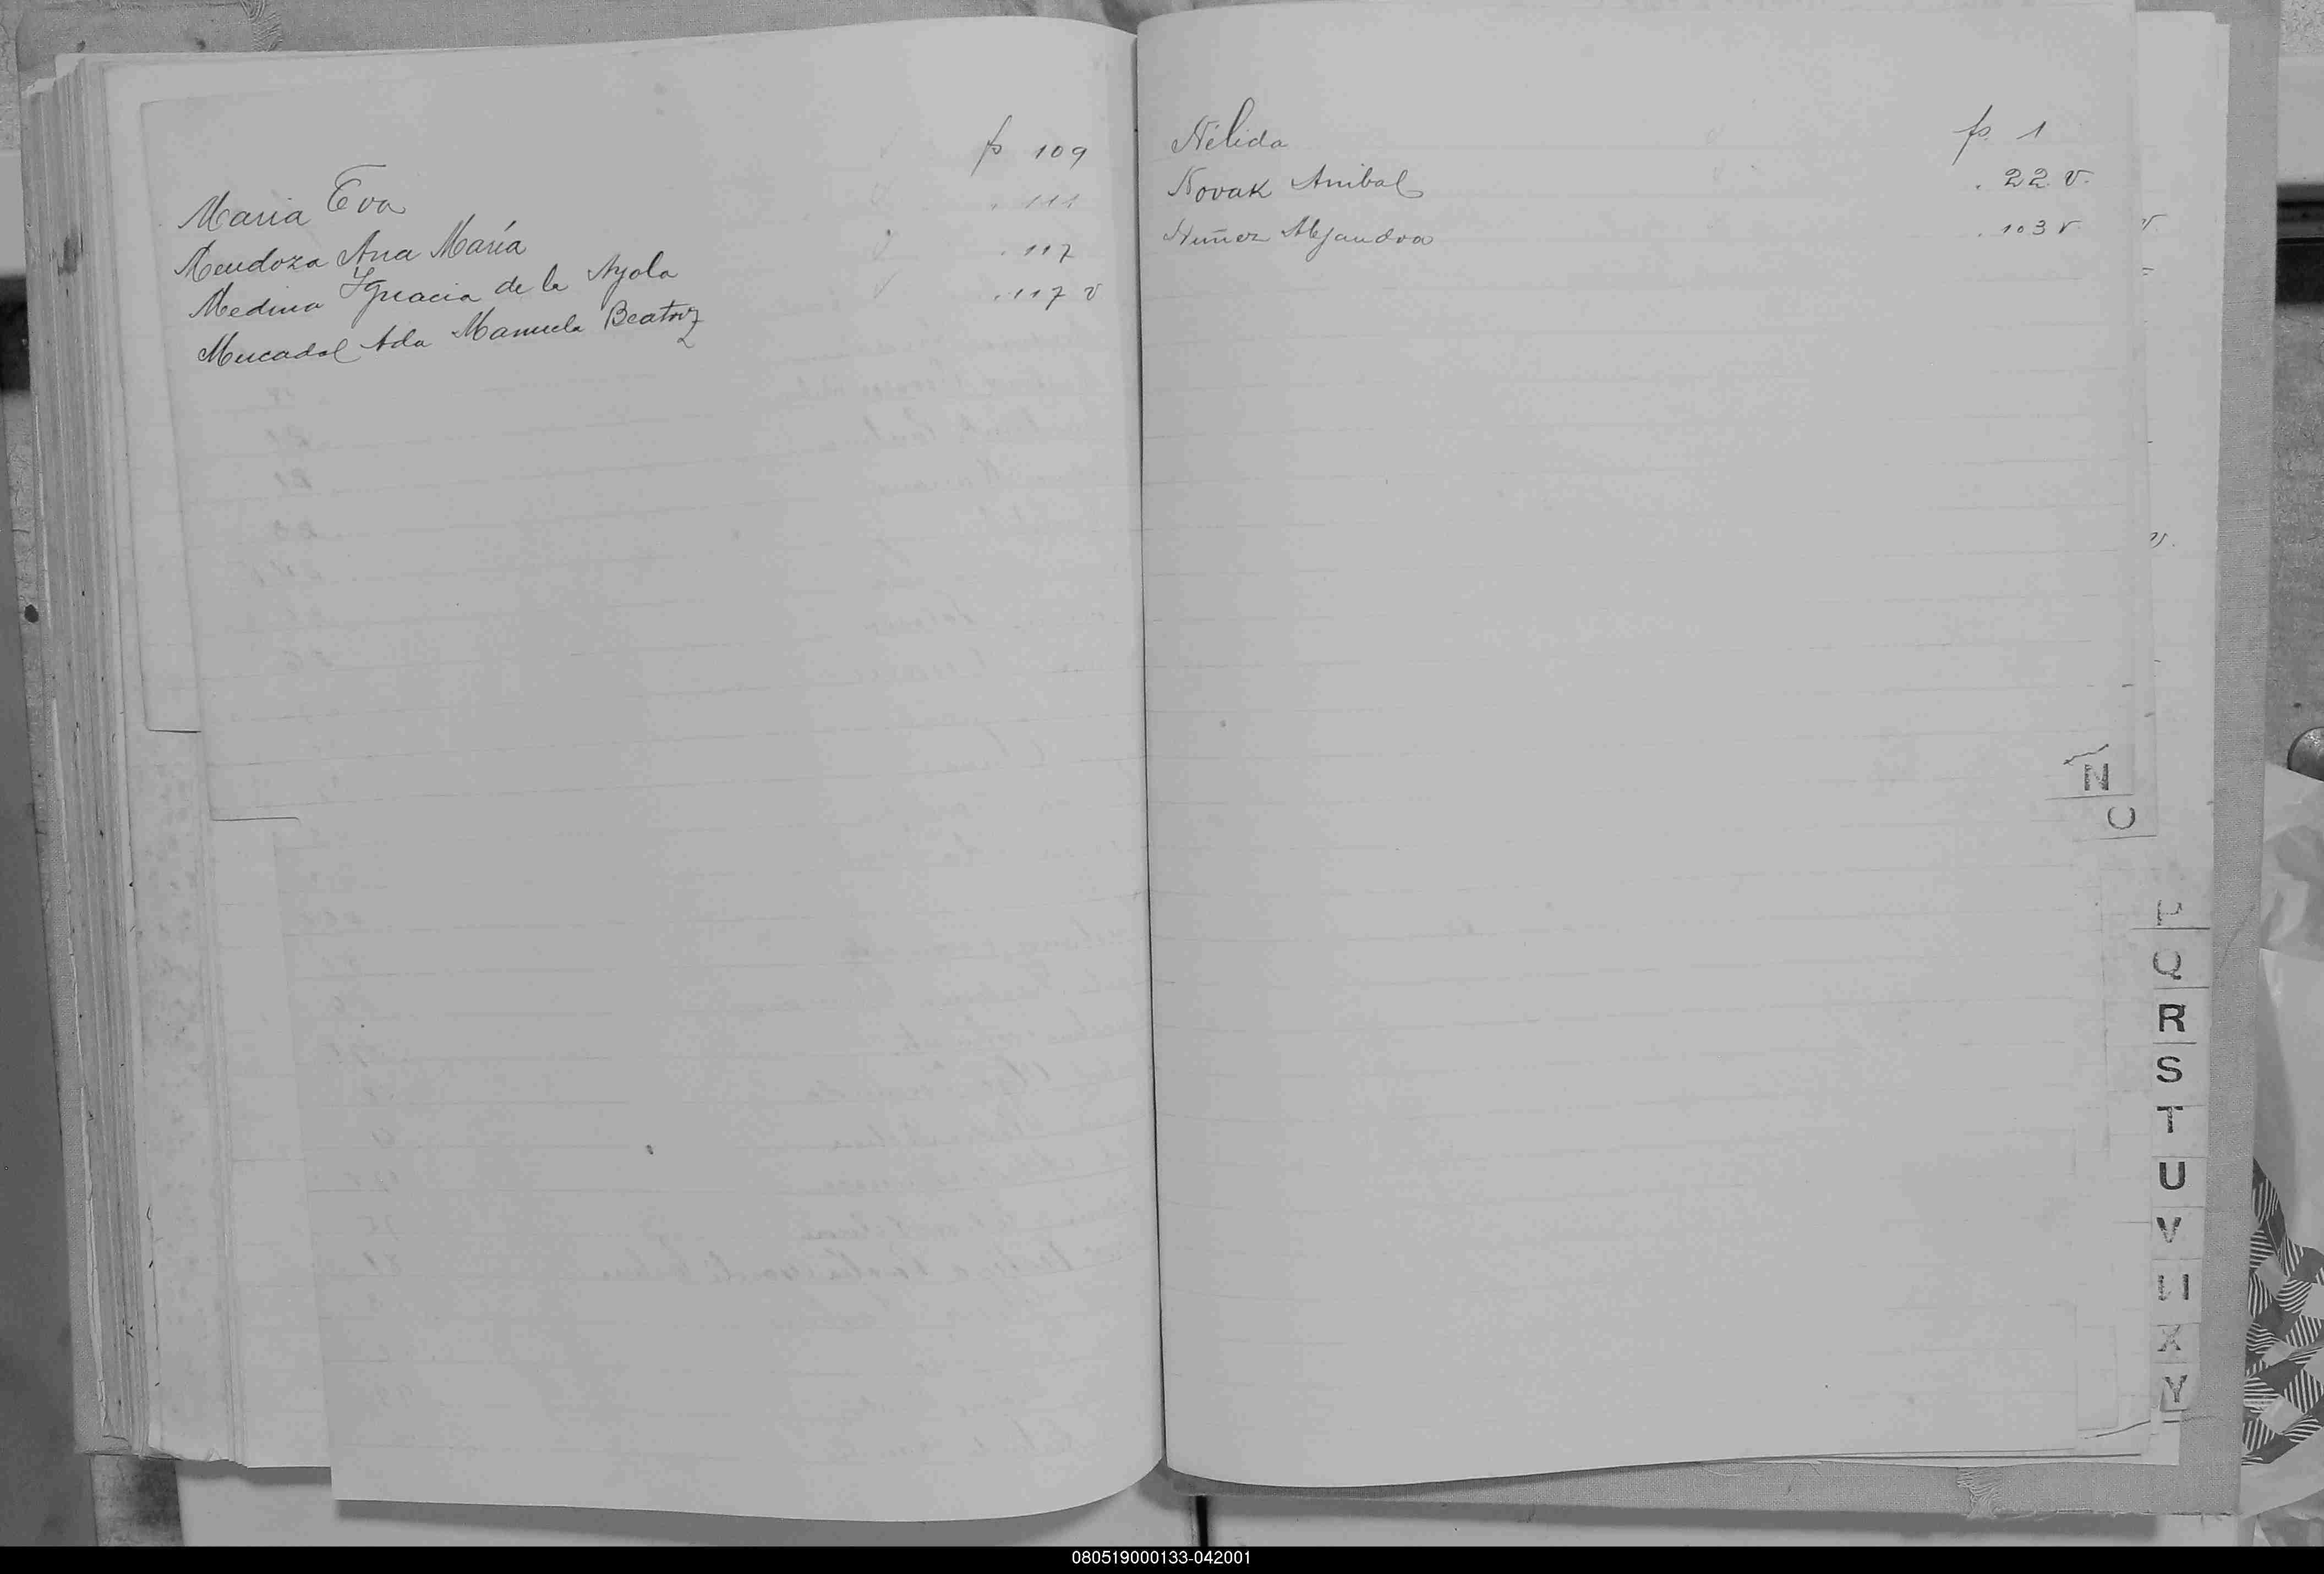 Maria Eva fs 109
Mendoza Ana María . 111
Medina Ygnacia de la Ayola . 117
Mercadal Ada Manuela Beatriz . 117 v
Nélida fs 1
Novak Anibal . 22 v.
Nuñez Alejandra . 103 v
N
P
Q
R
S
T
U
V
X
Y
080519000133-042001